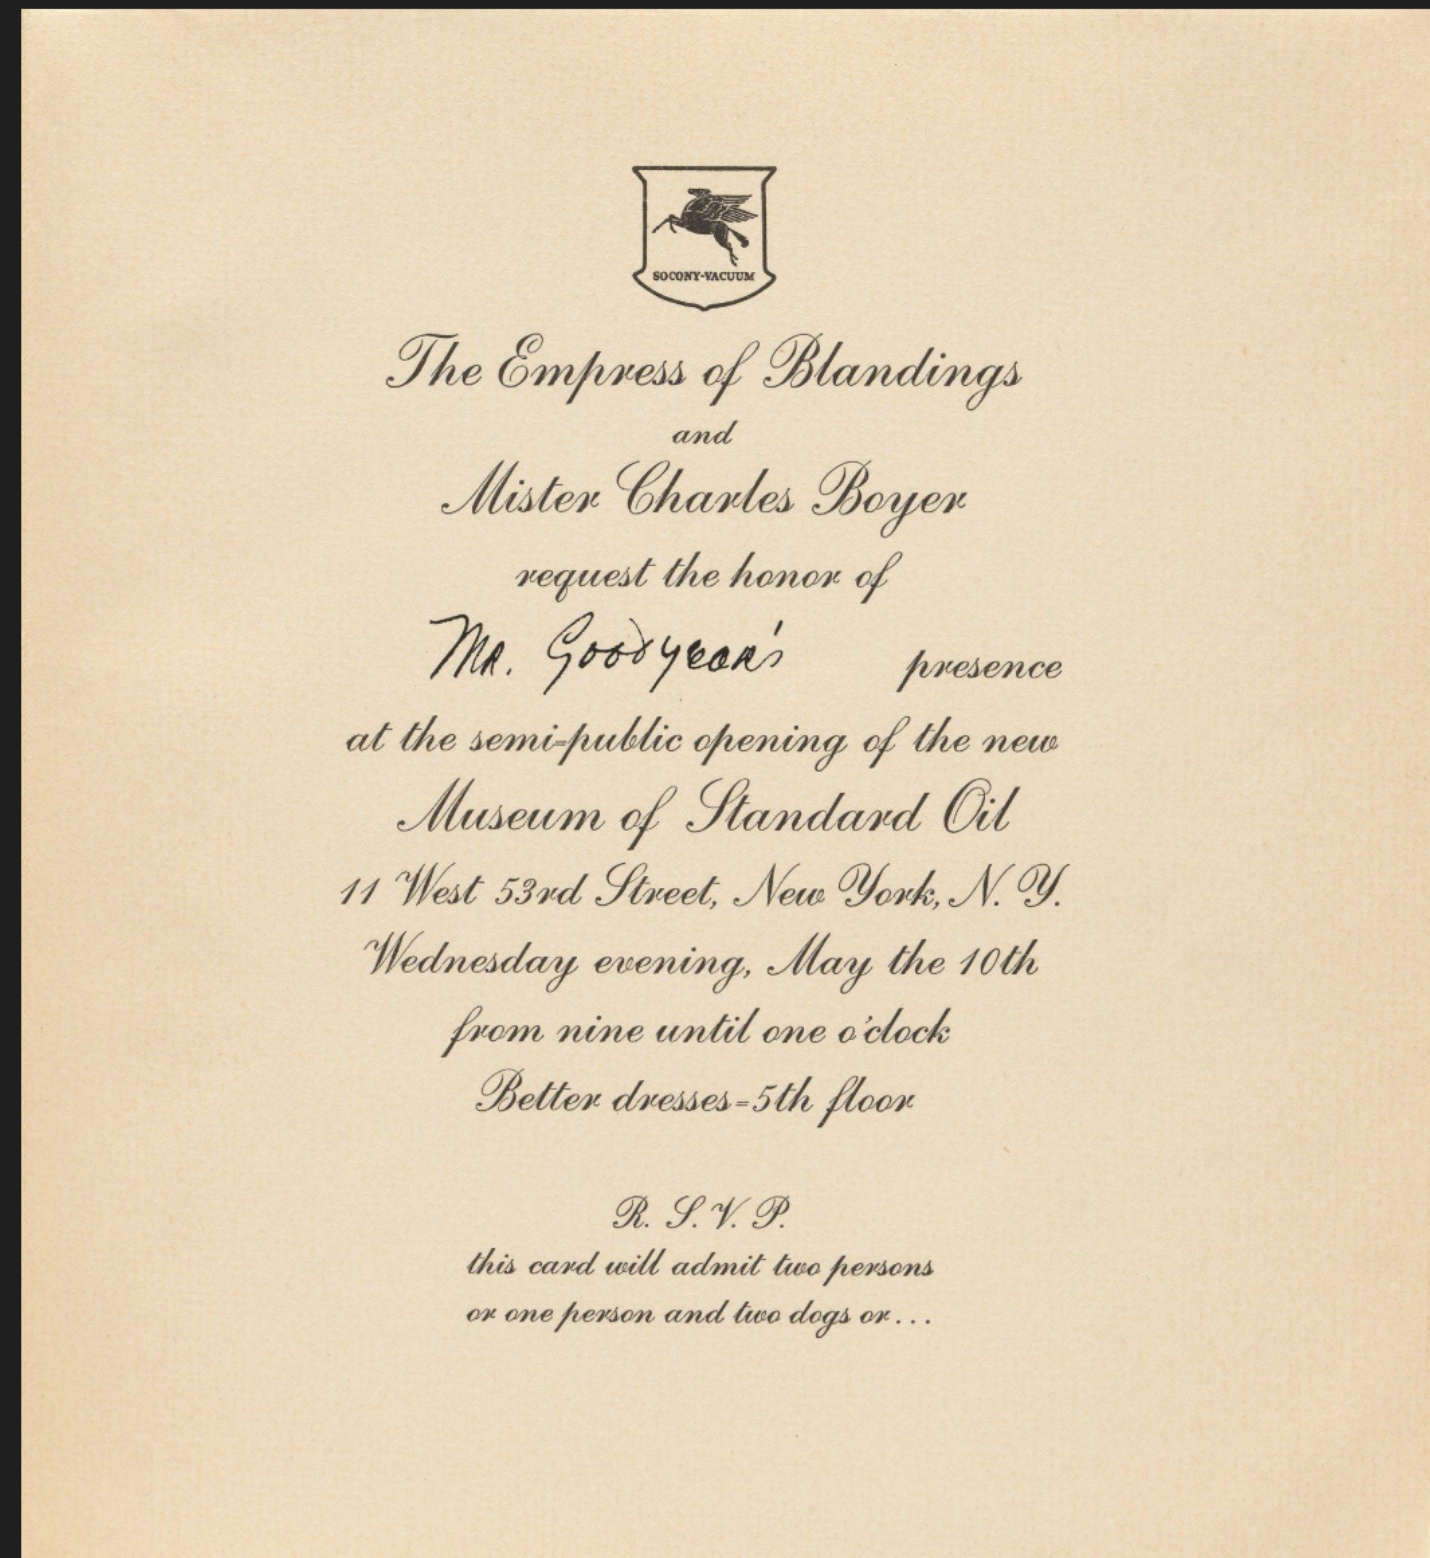 SOCONY-VACUUM
The Empress of Blandings
and
Mister Charles Boyer
request the honor of
Mr. Goodyear's presence
at the semi-public opening of the new
Museum of Standard Oil
11 West 53rd Street, New York, N. Y.
Wednesday evening, May the 10th
from nine until one o'clock
Better dresses-5th floor
R. S. V. P.
this card will admit two persons
or one person and two dogs or...